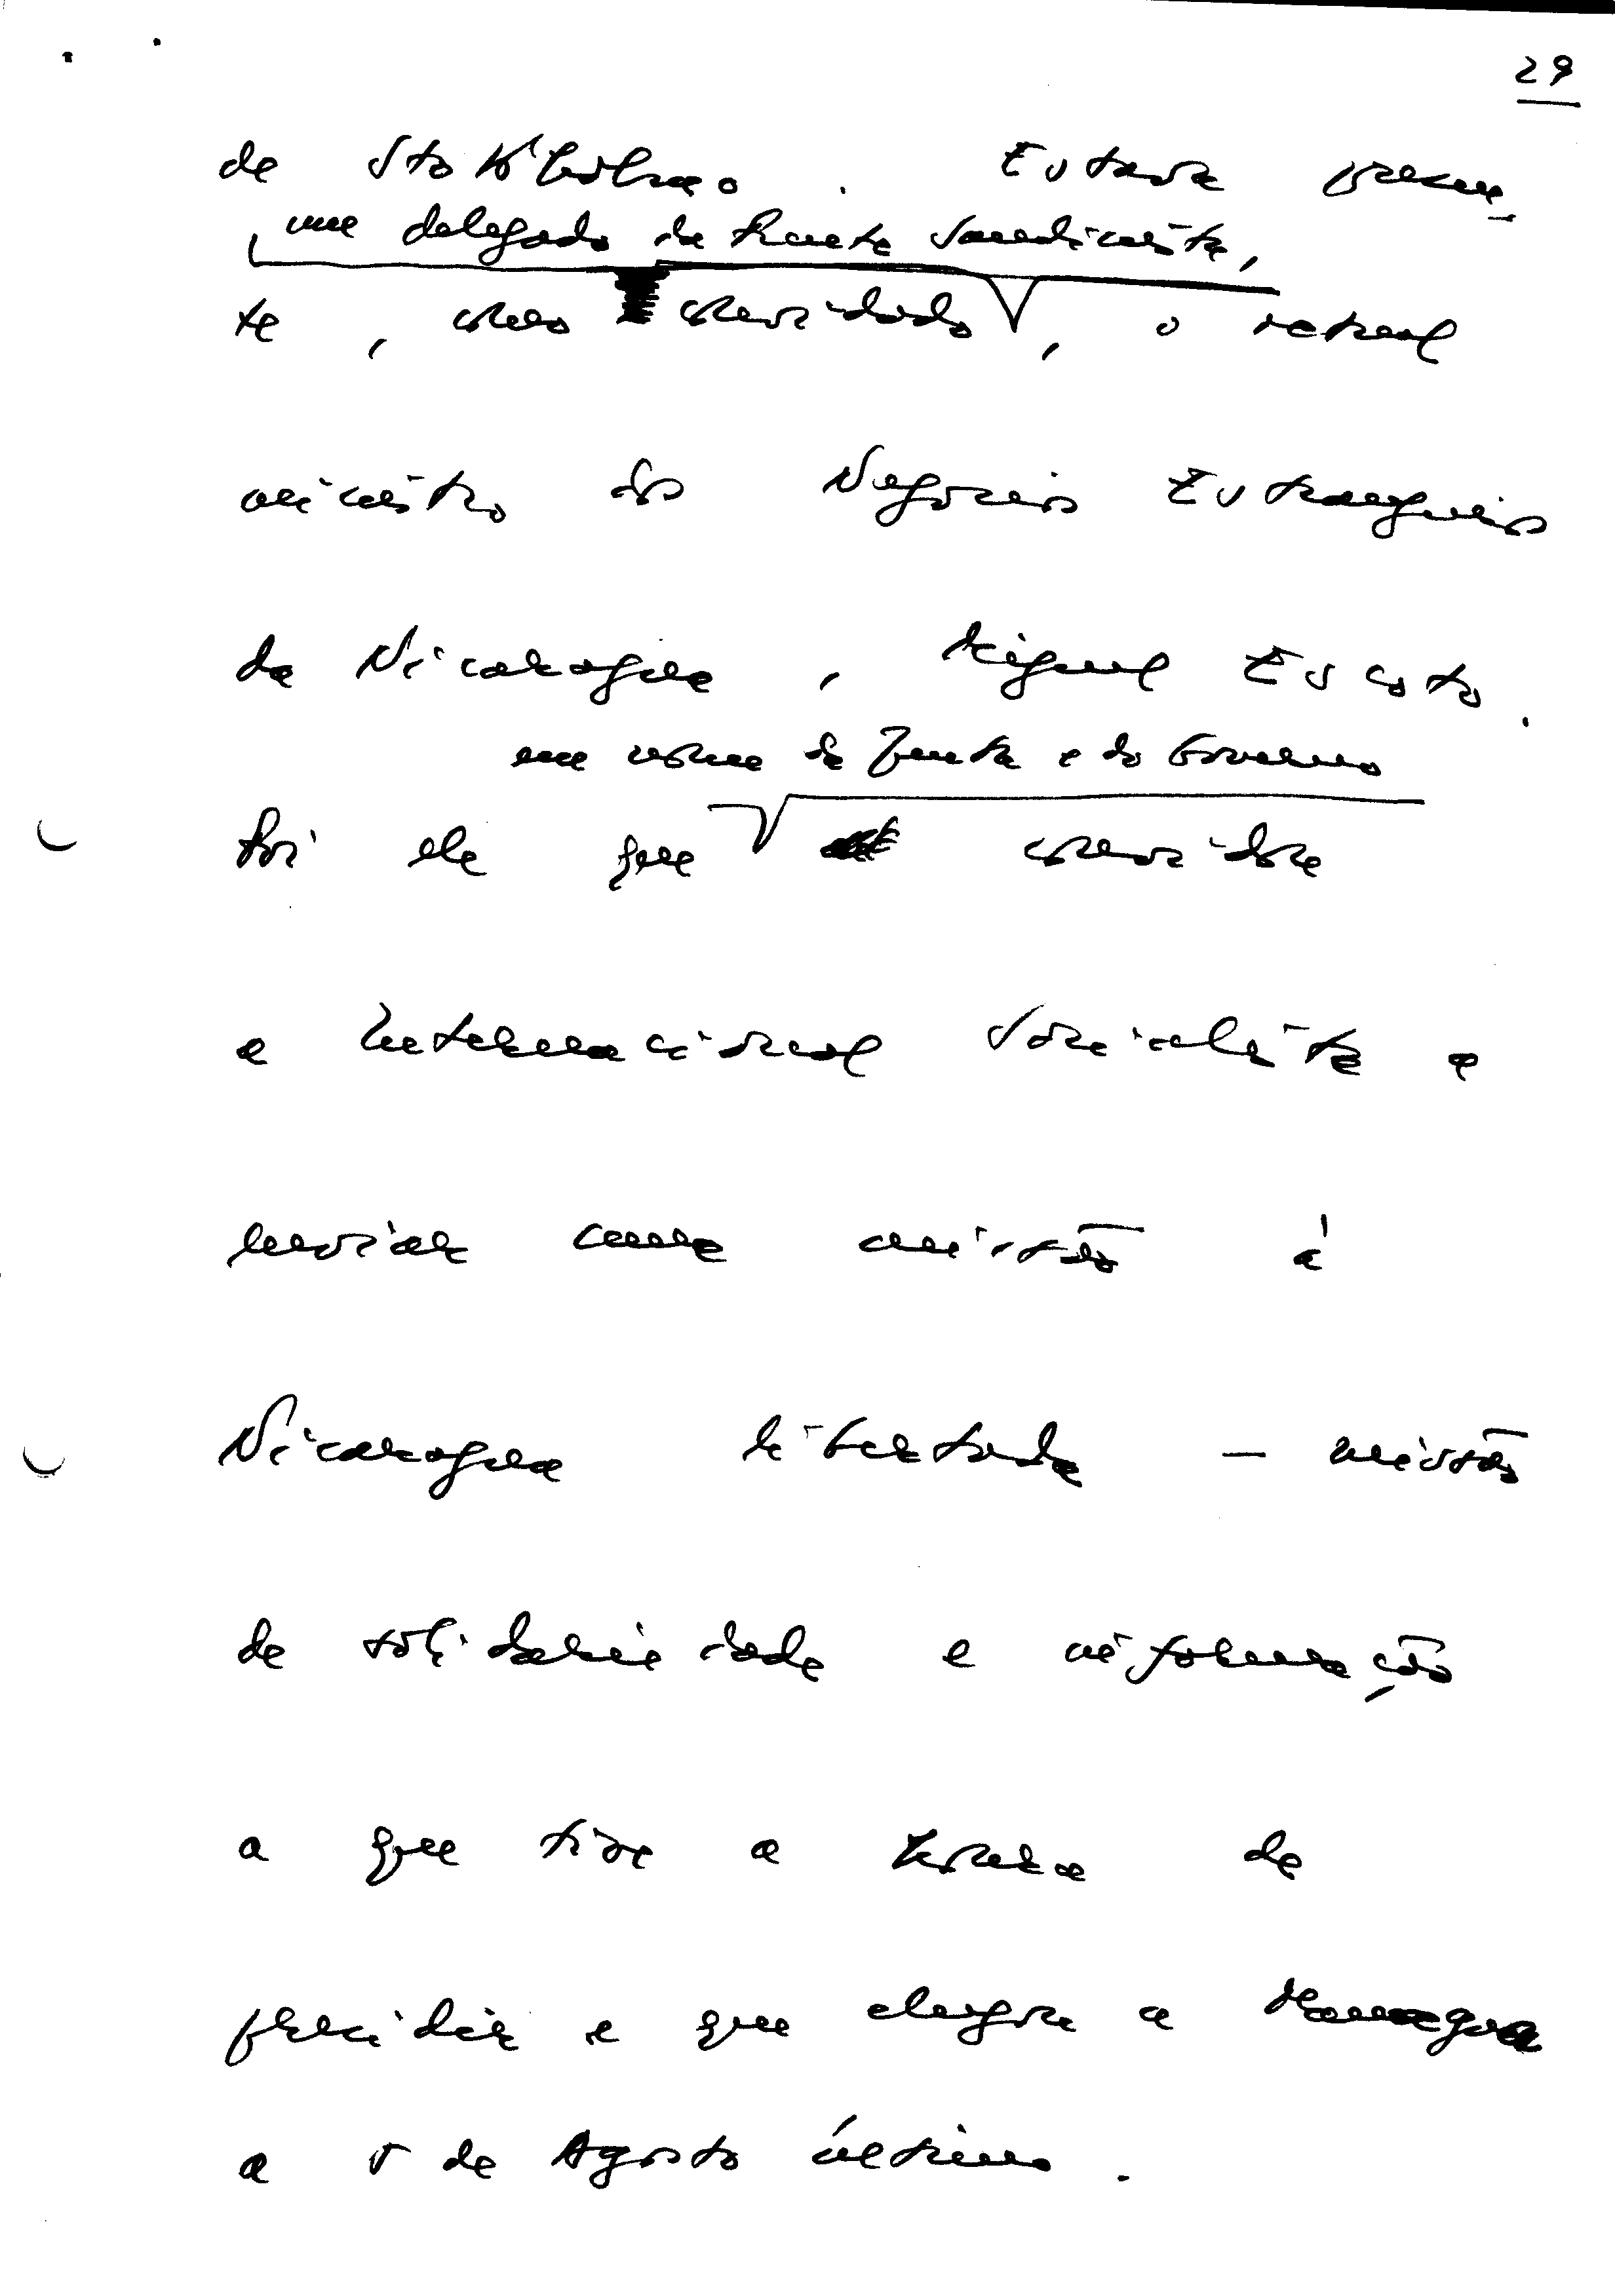 29
de Stokholmo. Estava presen-
um delegado da Frente Sandinista,
te, como convidado, o actual
ministro dos Negócios Estrangeiros
da Nicarágua, Miguel Escoto.
em nome da Junta e do Governo
Foi ele que convidou
a Internacional Socialista a
enviar uma missão à
Nicarágua libertada — missão
de solidariedade e informação
a que tive a honra de
presidir e que chegou a Managua
a 5 de Agosto último.